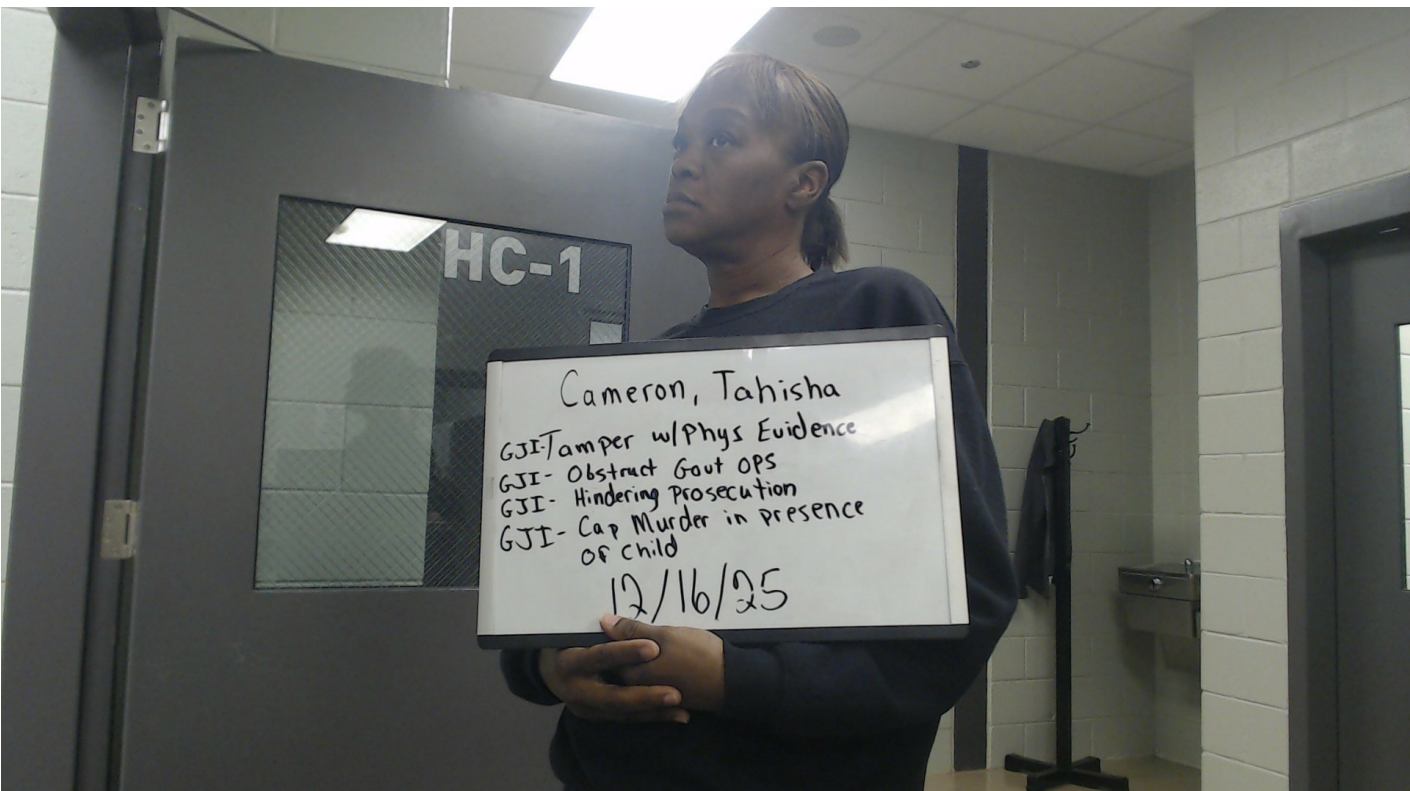 HC-1
Cameron, Tahisha
GJI-Tamper w/Phys Evidence
GJI- Obstruct Govt OPS
GJI- Hindering Prosecution
GJI- Cap Murder in presence
of child
12/16/25